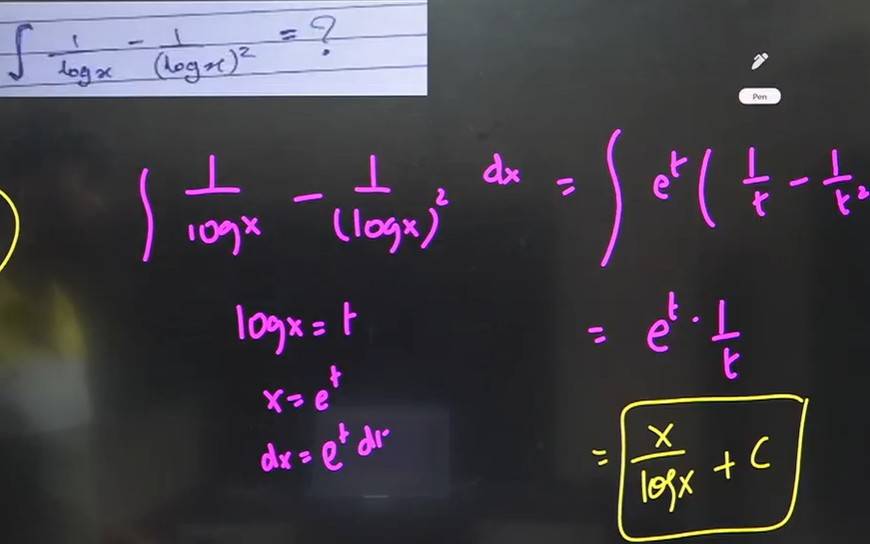 ∫ 1/logx - 1/(logx)² = ?
Pen
∫ 1/logx - 1/(logx)² dx = ∫ e^t ( 1/t - 1/t²
logx = t
x = e^t
dx = e^t dt
= e^t · 1/t
= x/logx + C